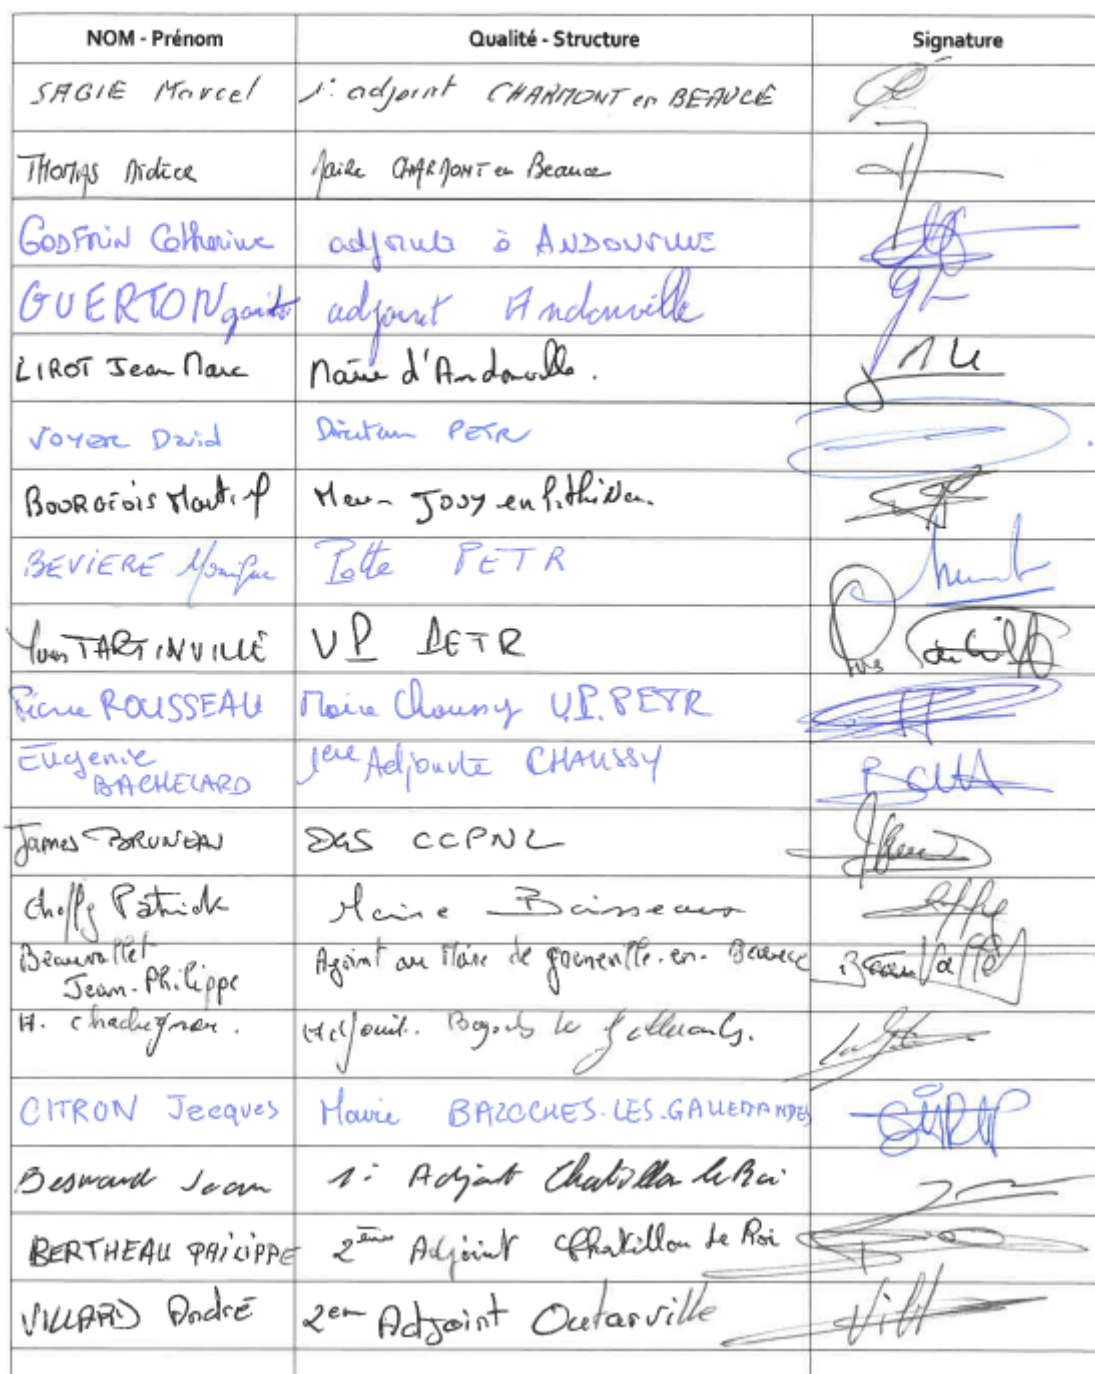 NOM - Prénom Qualité - Structure Signature
SAGIE Marcel 1: adjoint CHARMONT en BEAUCE
THOMAS Didier Maire CHARMONT en Beauce
GODFRIN Catherine adjointe à ANDONVILLE
GUERTON adjoint Andonville
LIROT Jean Marc Maire d'Andonville.
VOYER David Directeur PETR
BOURGEOIS Martial JOUY en Pithiver.
BEVIERE Monique PETR
Yves TARTINVILLE VP PETR
Pierre ROUSSEAU Maire Chaussy V.P. PETR
Eugenie
BACHELARD 1ere Adjointe CHAUSSY
James BRUNEAU DGS CCPNL
Choffy Patrick Maire Boisseaux
Beauvallet
Jean-Philippe Agoint au Maire de en. Beauce BeauVallet
H. Adjoint.
CITRON Jacques Maire BAZOCHES-LES-GALLERANDES
Besnard Jean 1: Adjoint Chatillon le Roi
BERTHEAU PHILIPPE 2ème Adjoint Chatillon Le Roi
VILLARD André 2em Adjoint Outarville